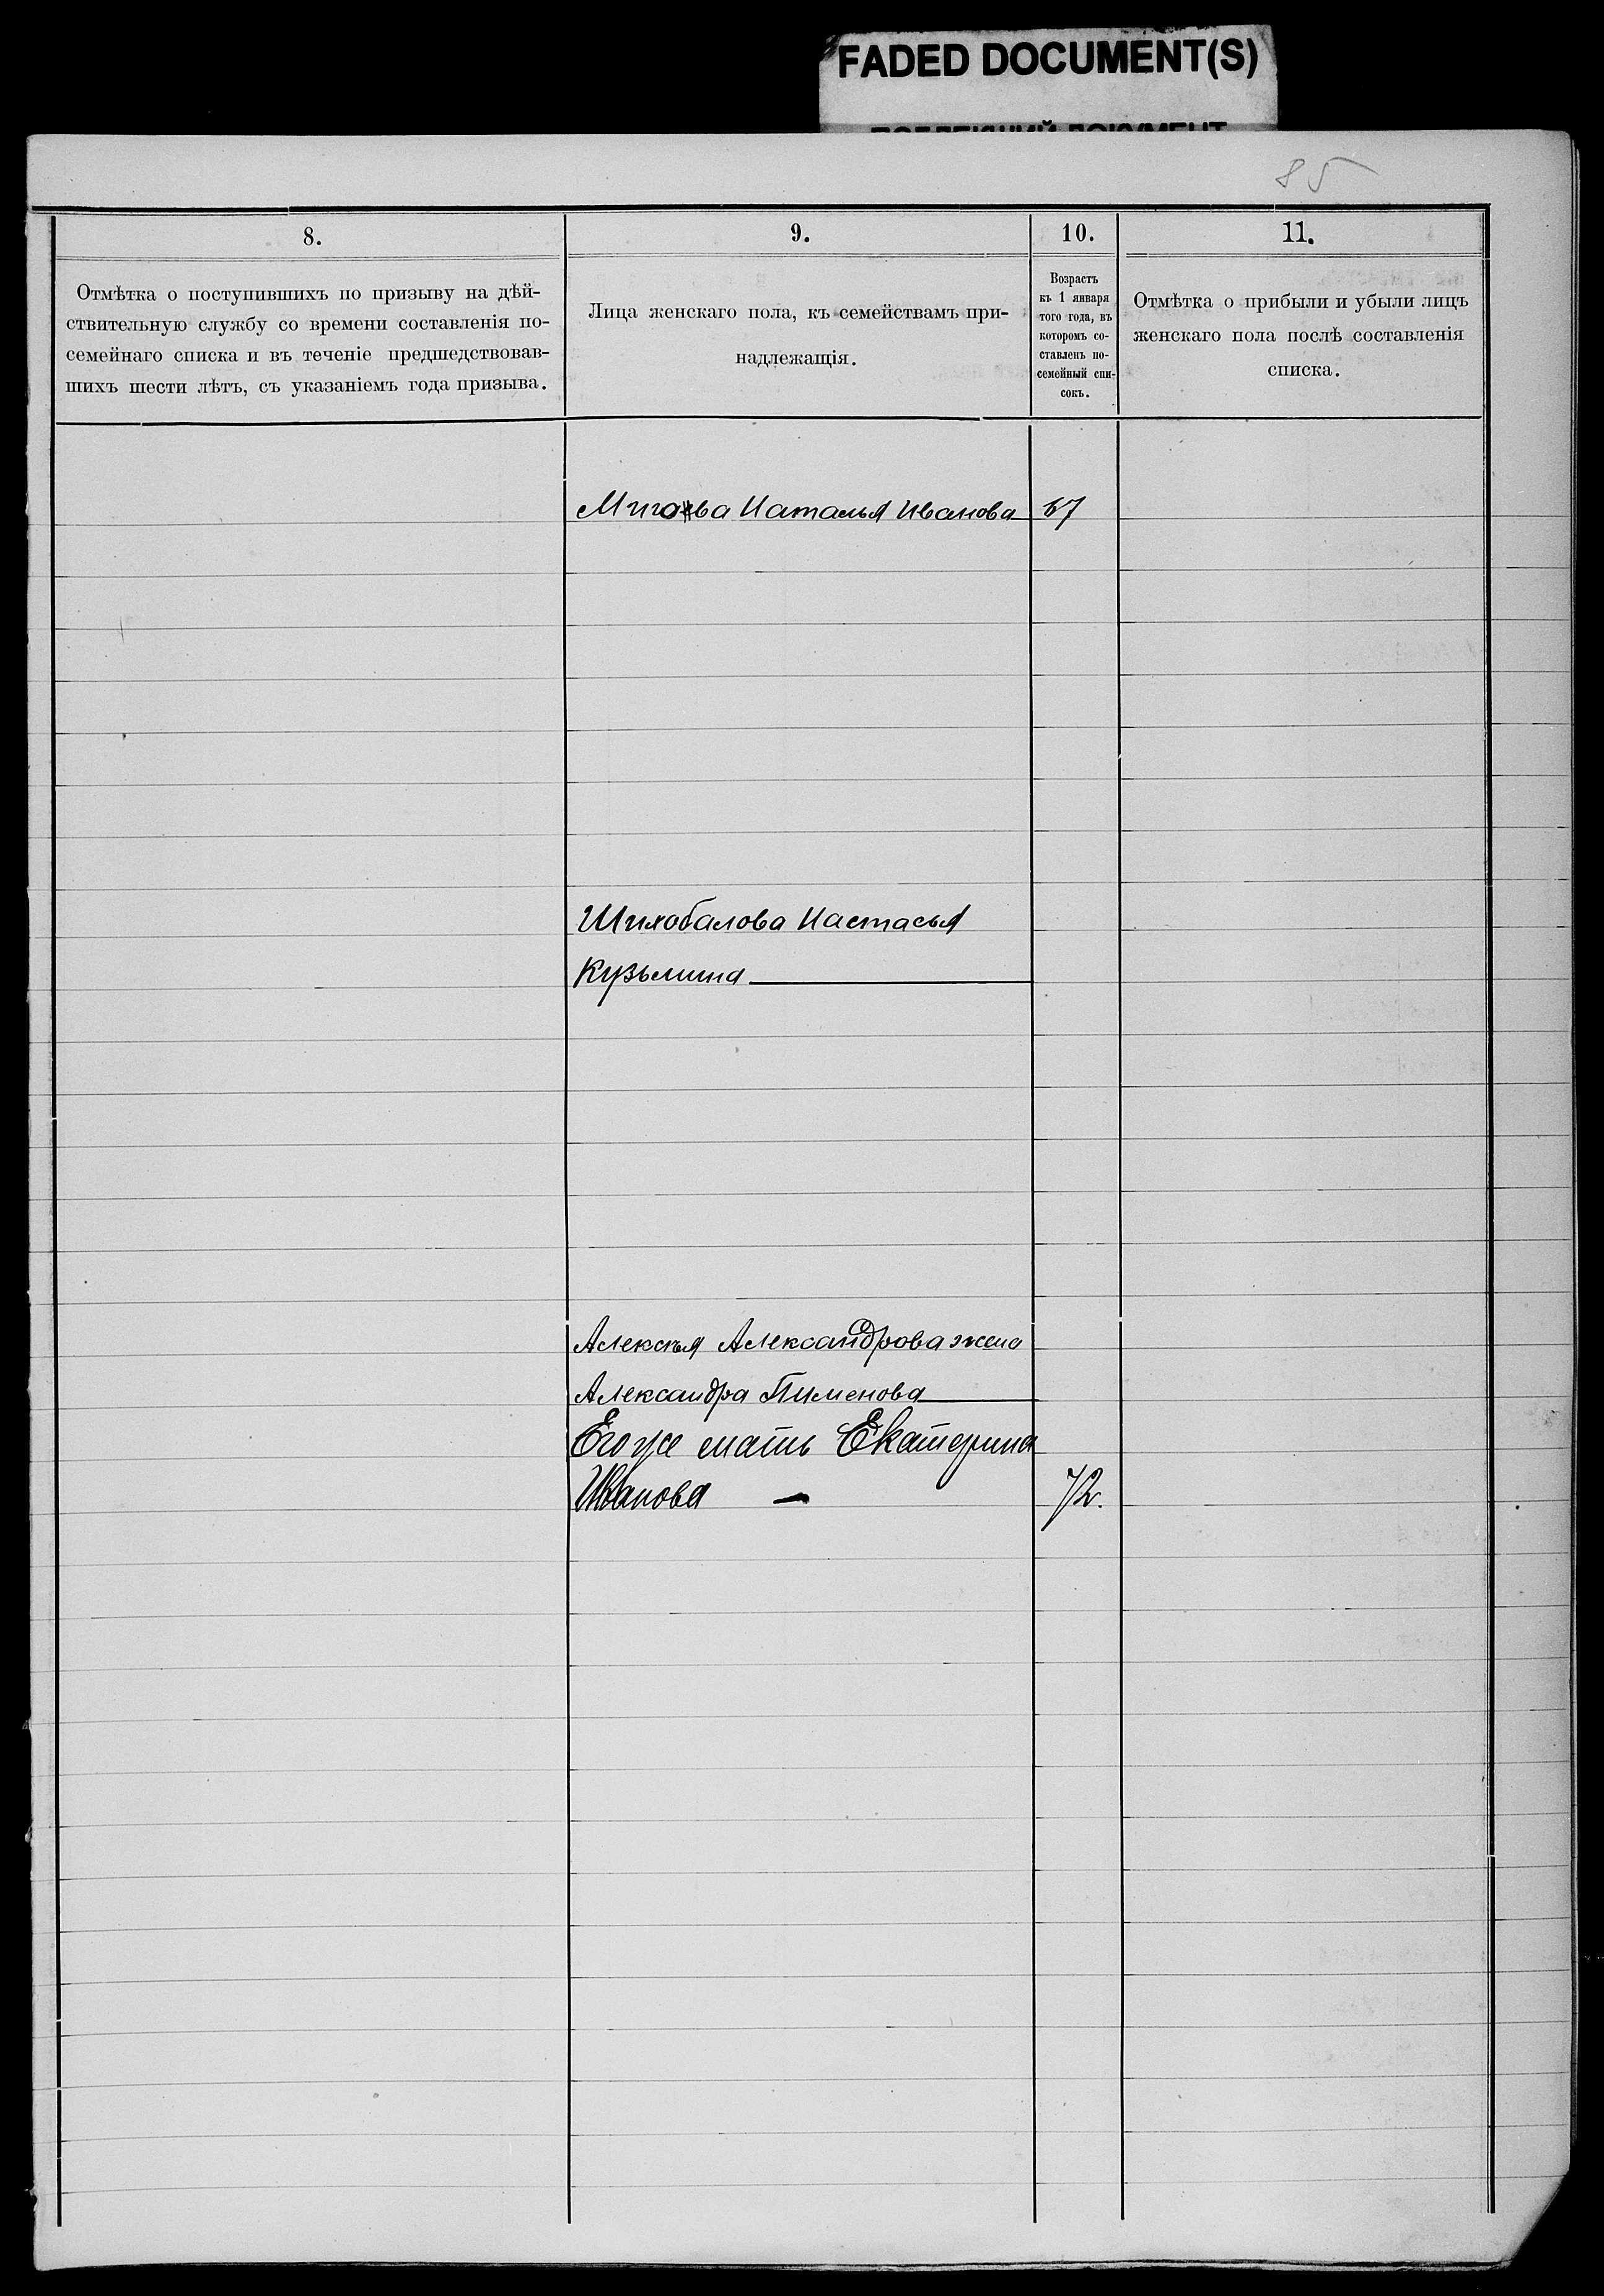 FADED DOCUMENT(S)
85
8.
Отмѣтка о поступившихъ по призыву на дѣй-
ствительную службу со времени составленія по-
семейнаго списка и въ теченіе предшедствовав-
шихъ шести лѣтъ, съ указаніемъ года призыва.
9.
Лица женскаго пола, къ семействамъ при-
надлежащія.
10.
Возрастъ
къ 1 января
того года, въ
которомъ со-
ставленъ по-
семейный спи-
сокъ.
11.
Отмѣтка о прибыли и убыли лицъ
женскаго пола послѣ составленія
списка.
Наталья Иванова 67
Шихобалова Настасья
Кузьмина
Алексѣя Александрова жена
Александра Пименова
Его же мать Екатерина
Иванова - 72.